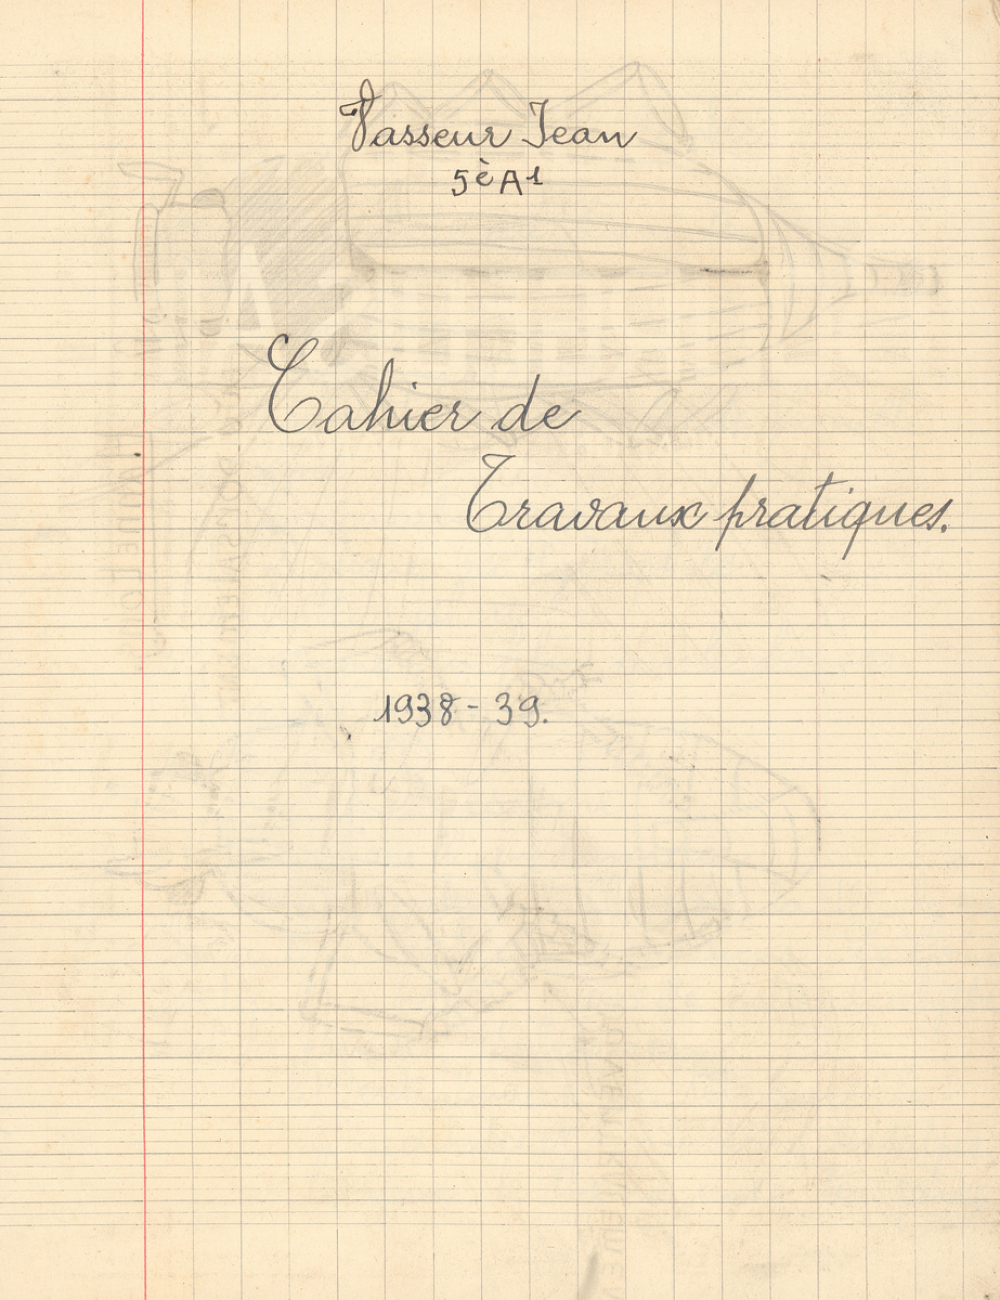 Vasseur Jean
5è A1
Cahier de
Travaux pratiques.
1938 - 39.